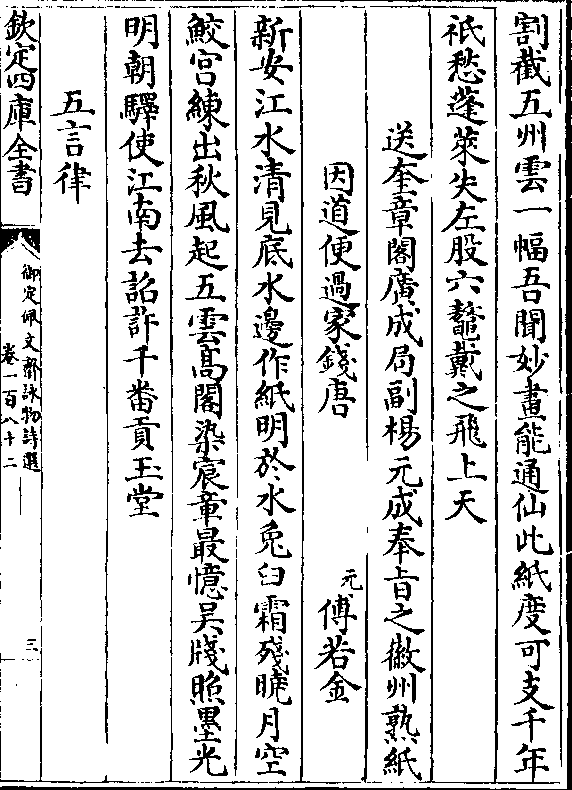 割截五州雲一幅吾聞妙畫能通仙此紙度可支千年
秪愁蓬萊失左股六鼇戴之飛上天
送奎章閣廣成局副楊元成奉旨之徽州熟紙
因道便過家錢唐
元
傅若金
新安江水清見底水邊作紙明於水兔臼霜殘曉月空
鮫宮練出秋風起五雲髙閣染宸章最憶吳牋照墨光
明朝驛使江南去詔許千畨貢玉堂
五言律
欽定四庫全書
御定佩文齋詠物詩選
卷一百八十二
三